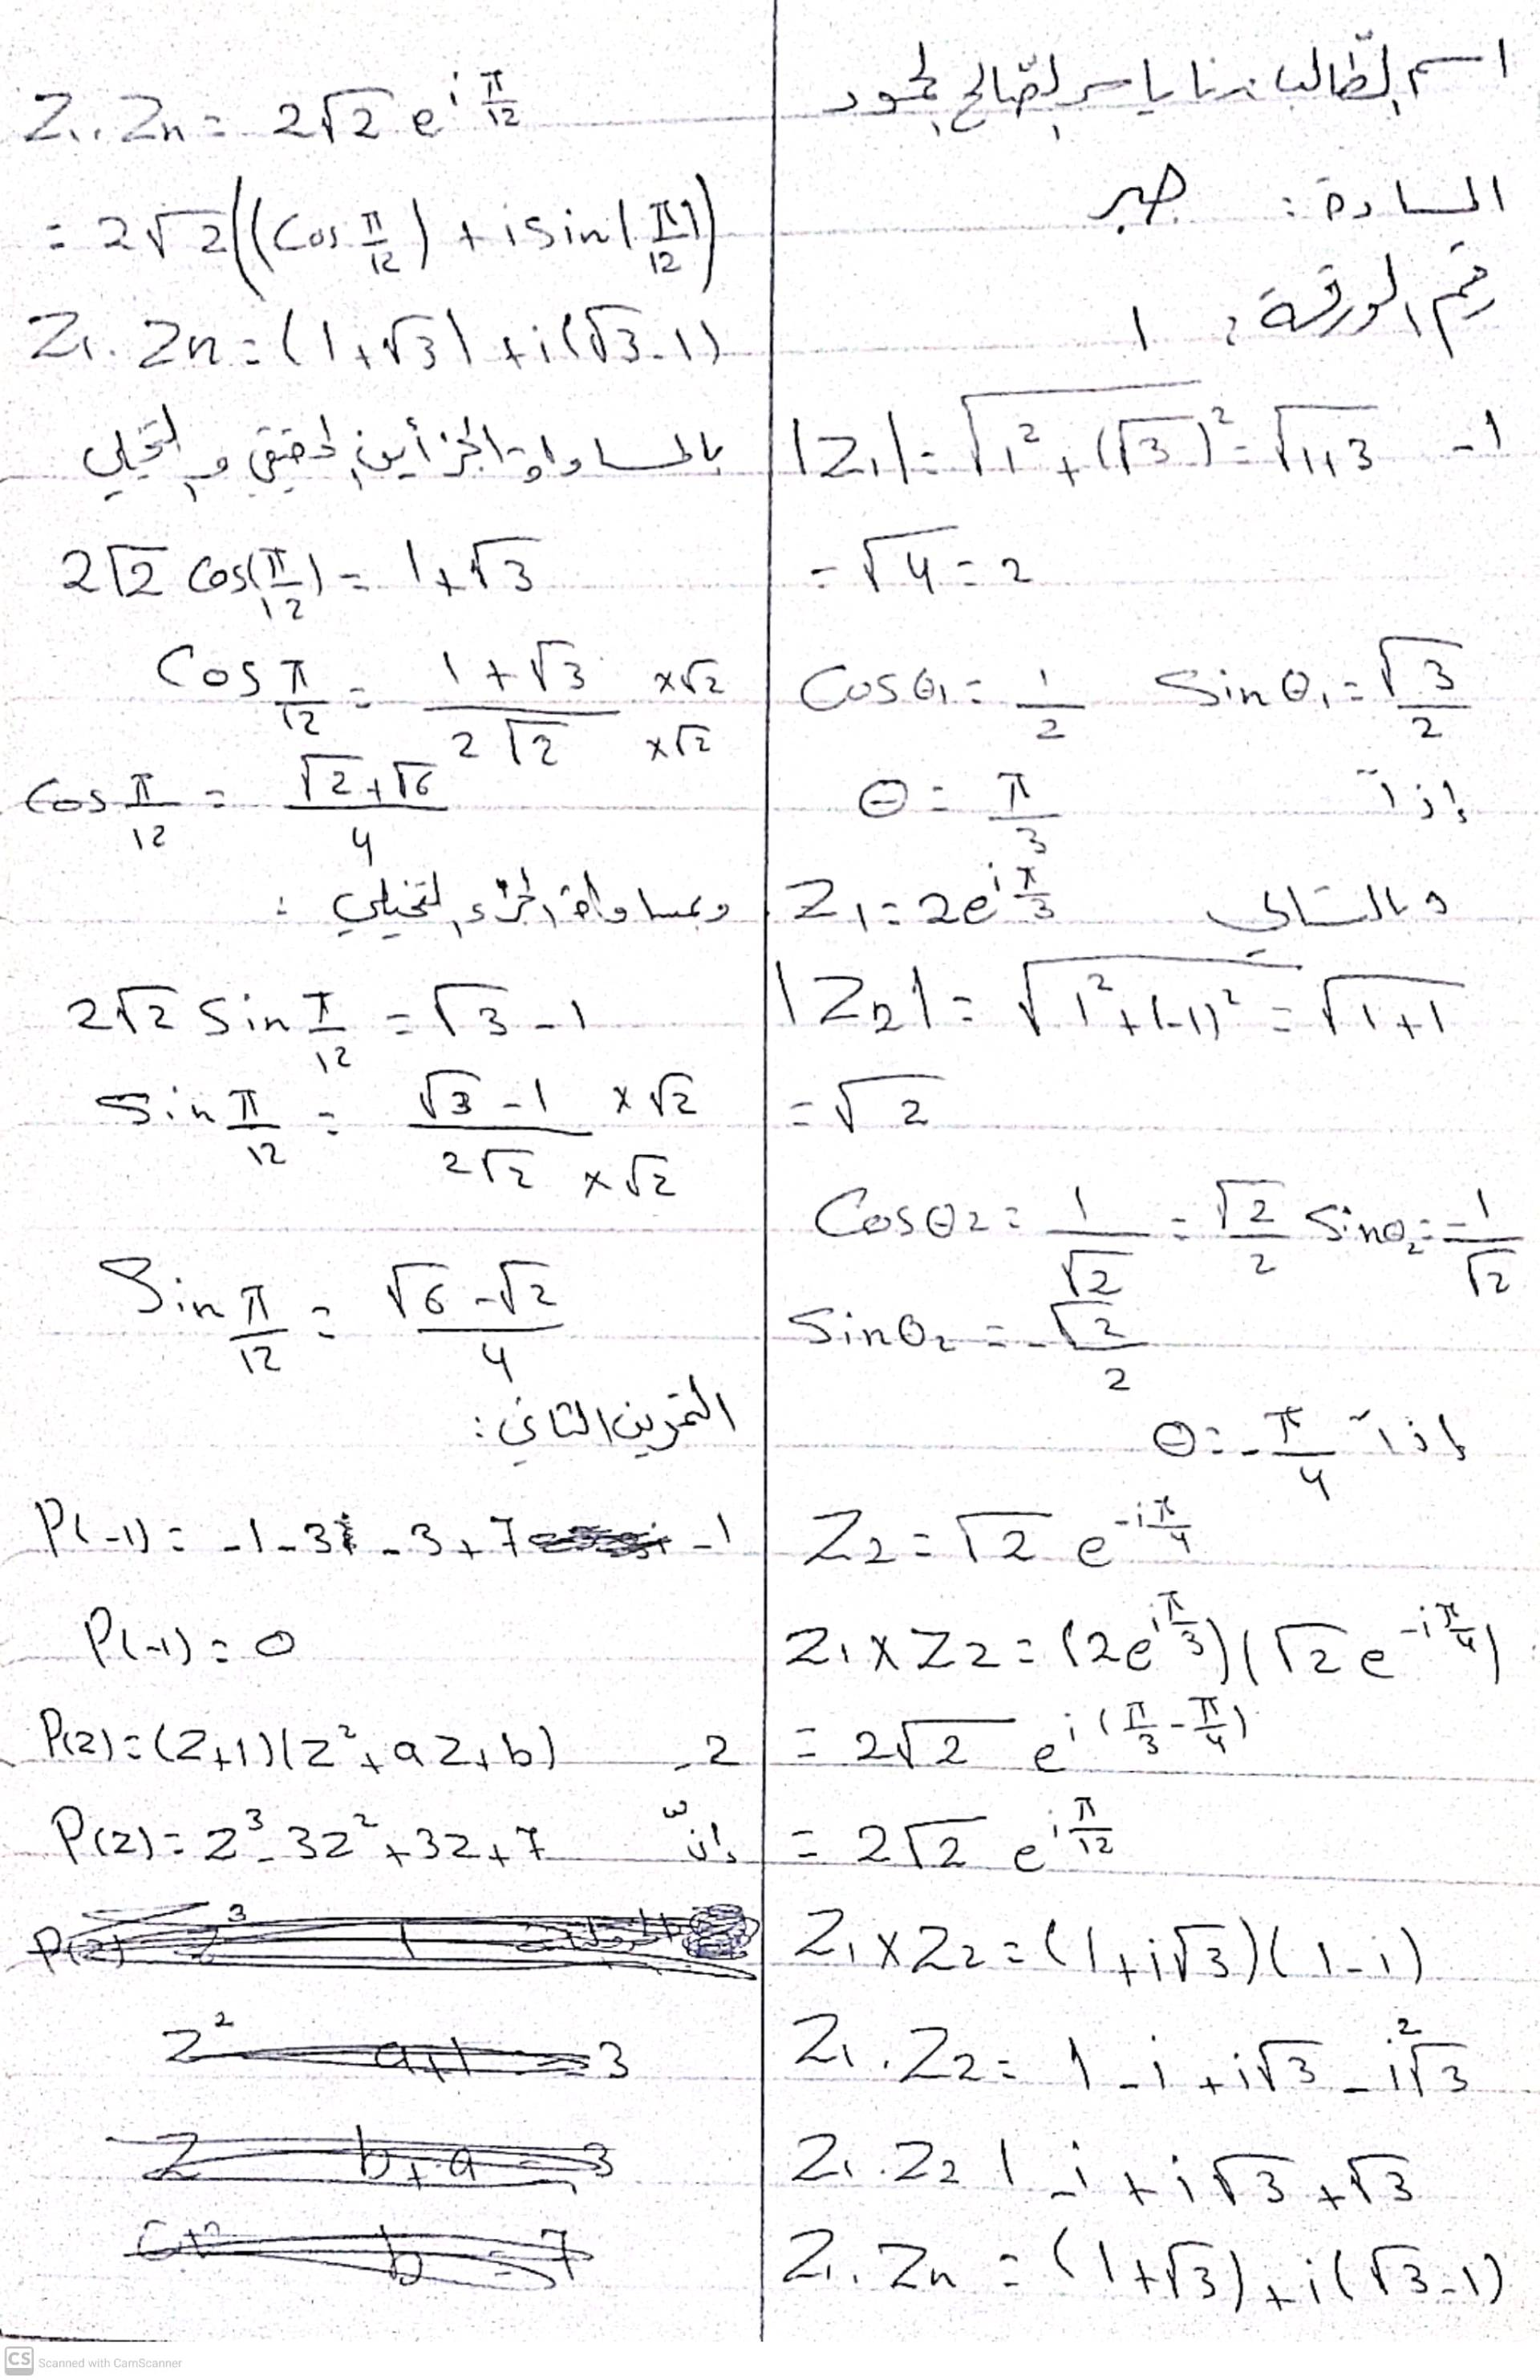 اسم الطالب: دنا ياسر الصالح الحمود
المادة: جبر
رقم الورقة: 1
1- |Z₁| = √(1² + (√3)²) = √(1+3)
= √4 = 2
Cosθ₁ = 1/2 Sinθ₁ = √3/2
إذاً θ = π/3
وبالتالي Z₁ = 2e^(iπ/3)
|Z₂| = √(1² + (-1)²) = √(1+1)
= √2
Cosθ₂ = 1/√2 = √2/2 Sinθ₂ = -1/√2
Sinθ₂ = -√2/2
إذاً θ = -π/4
Z₂ = √2 e^(-iπ/4)
Z₁ x Z₂ = (2e^(iπ/3))(√2 e^(-iπ/4))
= 2√2 e^(i(π/3 - π/4))
= 2√2 e^(iπ/12)
Z₁ x Z₂ = (1 + i√3)(1 - i)
Z₁.Z₂ = 1 - i + i√3 - i²√3
Z₁.Z₂ 1 - i + i√3 + √3
Z₁.Z₂ = (1+√3) + i(√3-1)
Z₁.Z₂ = 2√2 e^(iπ/12)
= 2√2((Cos π/12) + i Sin(π/12))
Z₁.Z₂ = (1+√3) + i(√3-1)
بالمساواة الجزأين الحقيقي والتخيلي
2√2 Cos(π/12) = 1+√3
Cos π/12 = (1+√3)/(2√2) x√2 x√2
Cos π/12 = (√2+√6)/4
وبمساواة الجزء التخيلي:
2√2 Sin π/12 = √3 - 1
Sin π/12 = (√3 - 1)/(2√2) x√2 x√2
Sin π/12 = (√6 - √2)/4
التمرين الثاني:
1- P(-1) = -1 - 3 - 3 + 7
P(-1) = 0
2- P(z) = (z+1)(z² + az + b)
إنّ P(z) = z³ - 3z² + 3z + 7
z² a+1 = 3
z b+a = 3
b = 7
CS Scanned with CamScanner